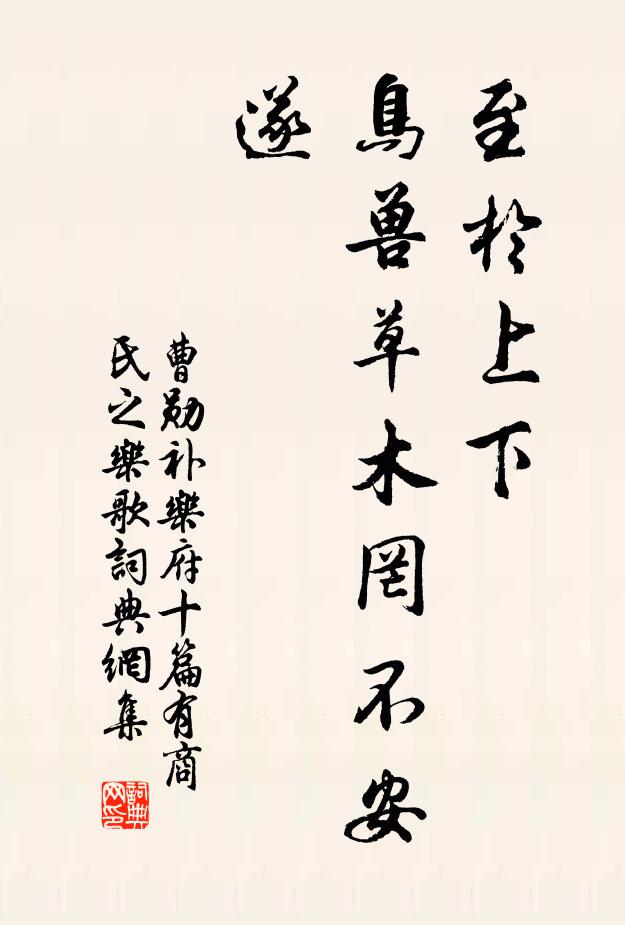 至於上下
鳥兽草木罔不安
遂
曹勋补樂府十篇有商
民之樂歌詞典網集
詞典
网印